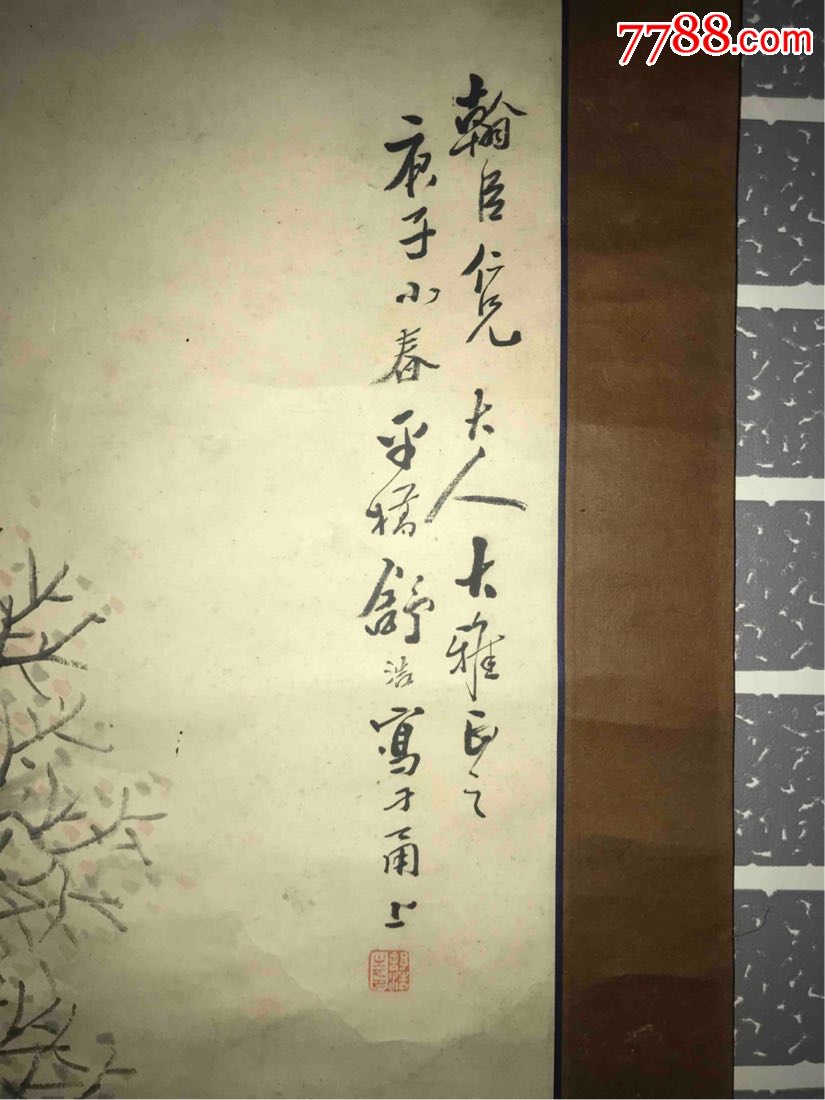 7788.com
翰臣仁兄大人大雅正之
庚子小春平橋舒浩寫于甬上
舒浩